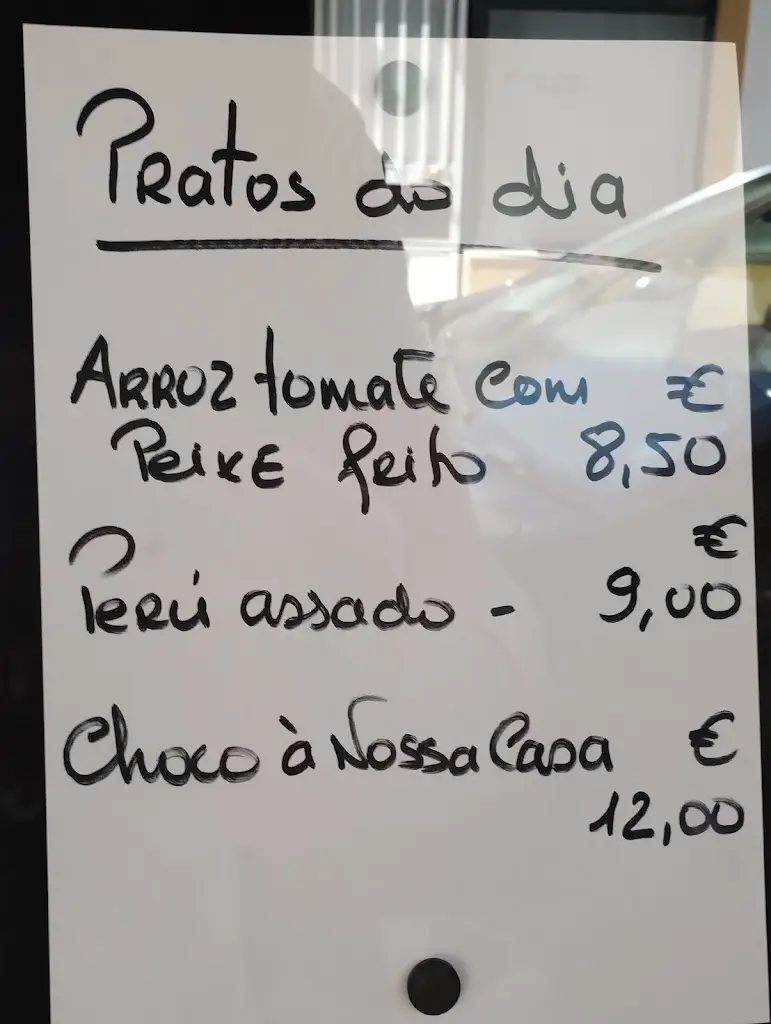 Pratos do dia
Arroz tomate com €
Peixe frito 8,50
€
Perú assado - 9,00
Choco à Nossa Casa €
12,00